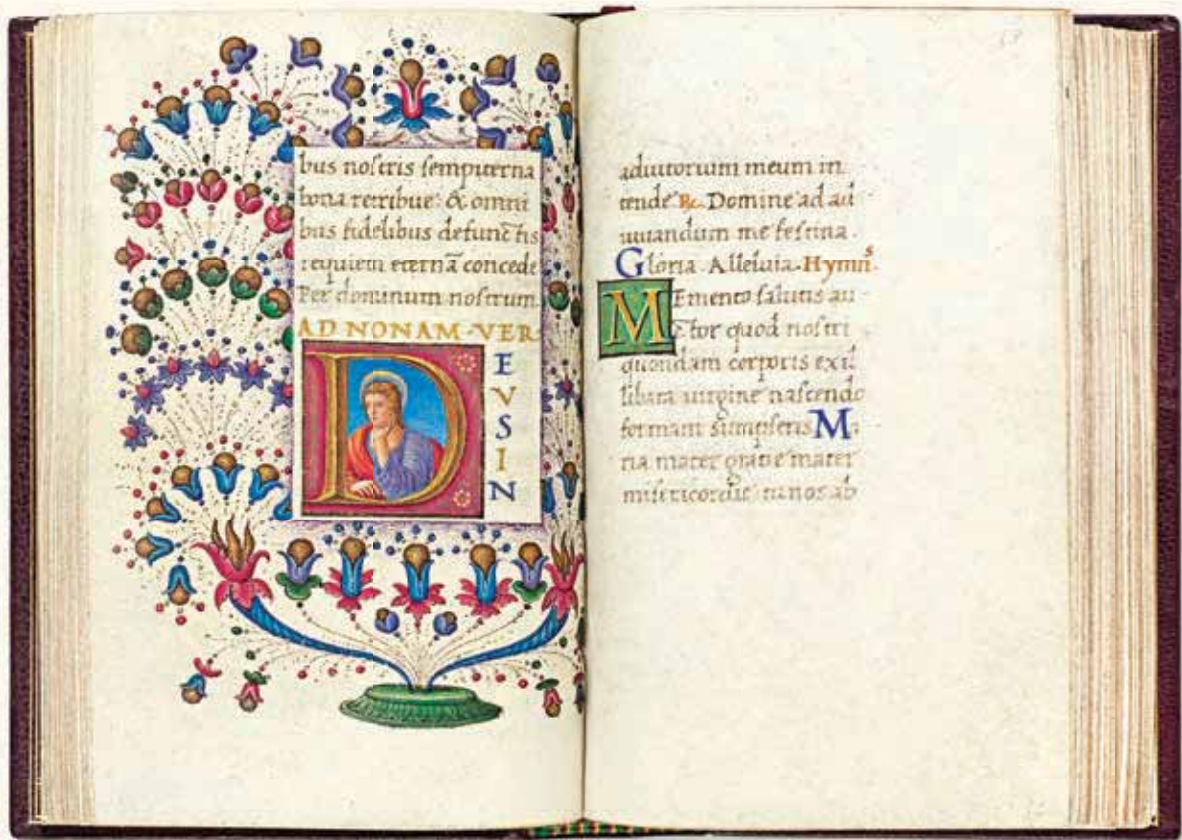 bus noſtris ſempiterna
bona retribue: & omni
bus fidelibus defunctis
requiem eternā concede
Per dominum noſtrum
AD NONAM·VER·
DEVS IN
adiutorium meum in
tende ℞. Domine ad ad
iuuandum me feſtina.
Gloria. Alleluia. Hymnˢ.
MEmento ſalutis au
ctor quod noſtri
quondam corporis ex il
libata uirgine naſcendo
formam sumpſeris Ma
ria mater gratie mater
miſericordie tu nos ab